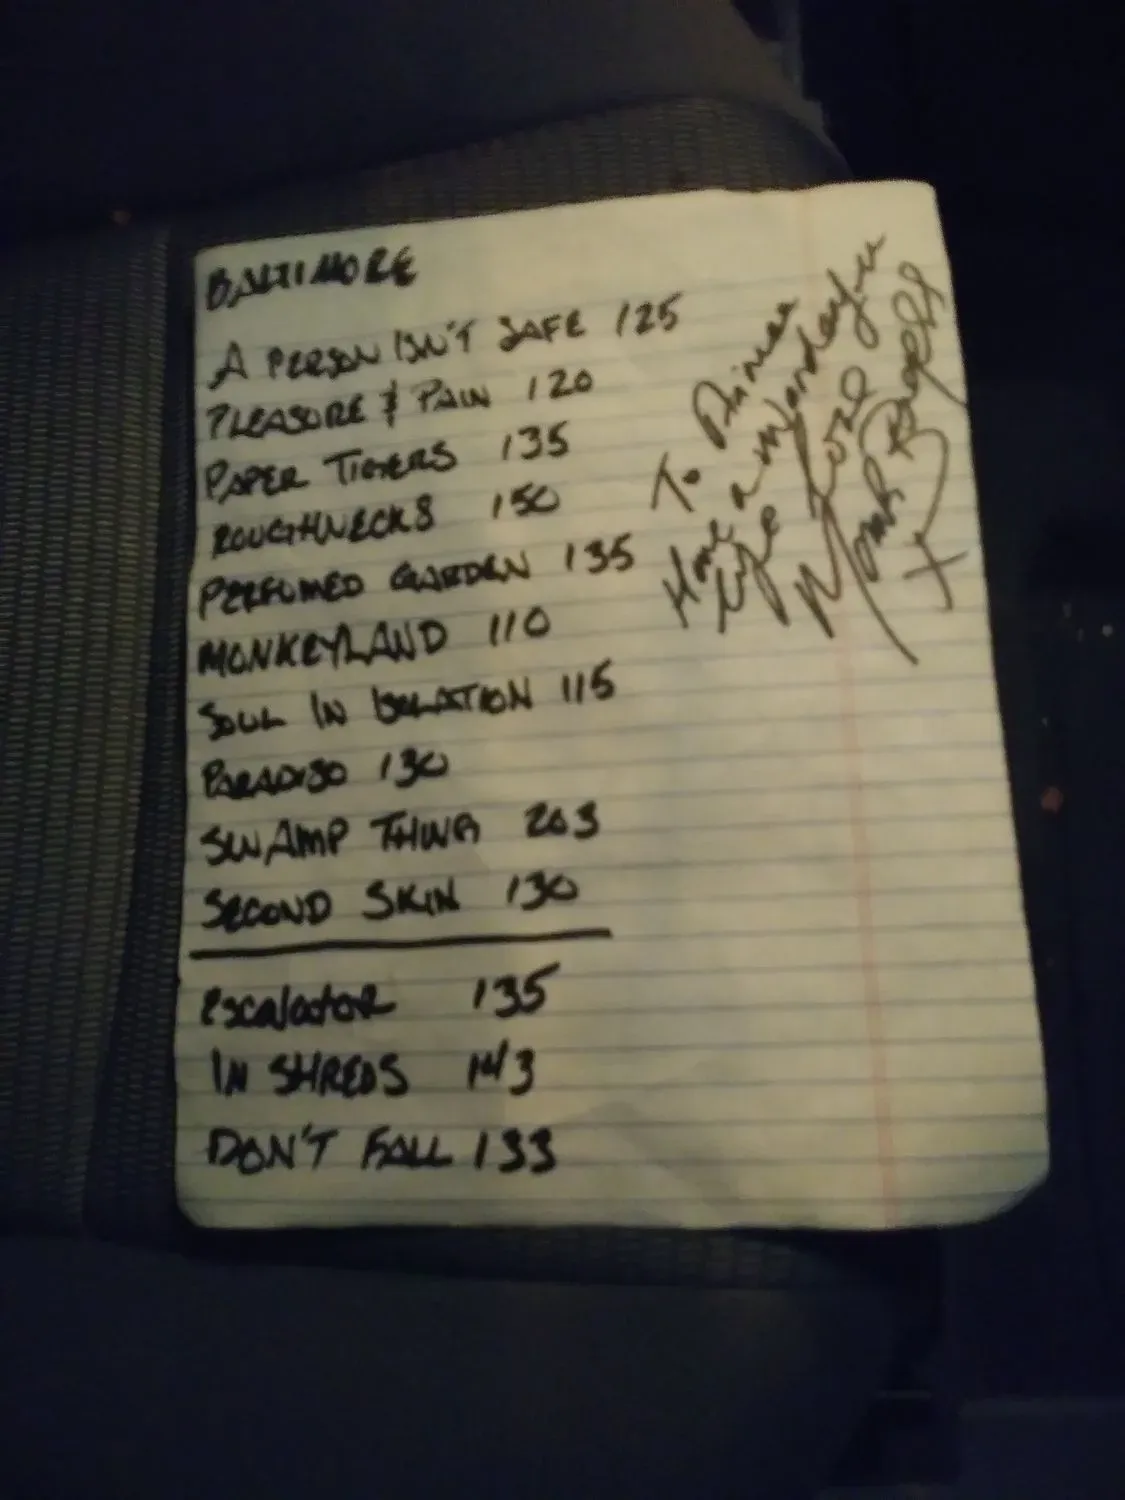 BALTIMORE
A PERSON ISN'T SAFE 125
PLEASURE & PAIN 120
PAPER TIGERS 135
ROUGHNECKS 150
PERFUMED GARDEN 135
MONKEYLAND 110
SOUL IN ISOLATION 115
PARADISO 130
SWAMP THING 203
SECOND SKIN 130
Escalator 135
IN SHREDS 143
DON'T FALL 133
To
Have a wonderful
Life
Love
Mark
X